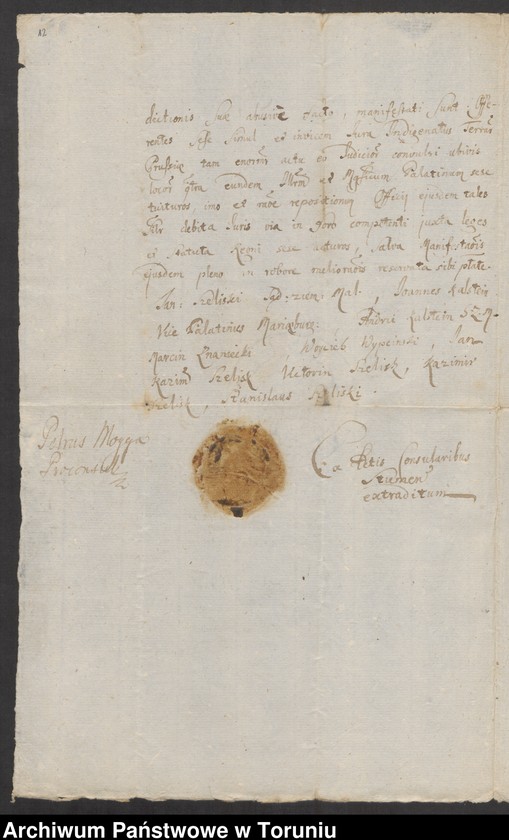 12
dictionis suæ abusive facto, manifestati sunt Offe-
rentes sese simul et in vicem Jura Indigenatus Terrar
Prussiæ tam enormi acta ob Judicior consulei ubivis
locor qtm eundem Illrm et Mgficum Palatinum sese
tuituros, imo et ratõe repositionum Officij ejusdem tales
debita Juris via in foro competenti juxta leges
et statuta Regni sese acturos, salva Manifestaõis
ejusdem pleno in robore meliorаõis reservata sibi ptate.
Jan Szeliski Sęd: ziem: Mal., Joannes Kalstein
Vice Palatinus Mariæburg: Andrii Kalstein S.Z.M.
Marcin Znaniecki, Woycieh Wypczinski, Jan
Kazim Szelisk Victorin Szelisk, Kazimir
Szelisk, Stanislaus Szeliski.
Petrus Mogga
Proconsul
Ex Actis Consularibus
Stumen
extraditum
Archiwum Państwowe w Toruniu